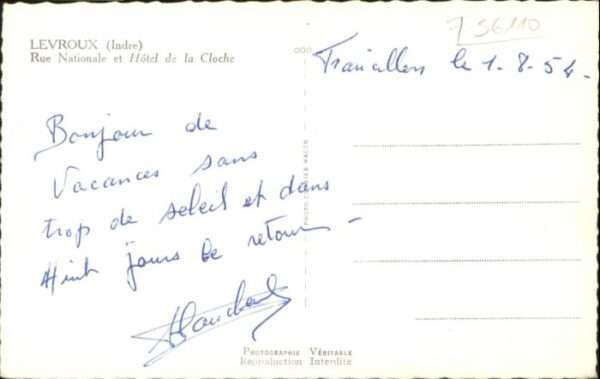 LEVROUX (Indre)
Rue Nationale et Hôtel de la Cloche
736110
Francillon le 1.8.54.
Bonjour de
Vacances sans
trop de soleil et dans
Huit jours le retour -
PHOTOGRAPHIE VÉRITABLE
Reproduction Interdite